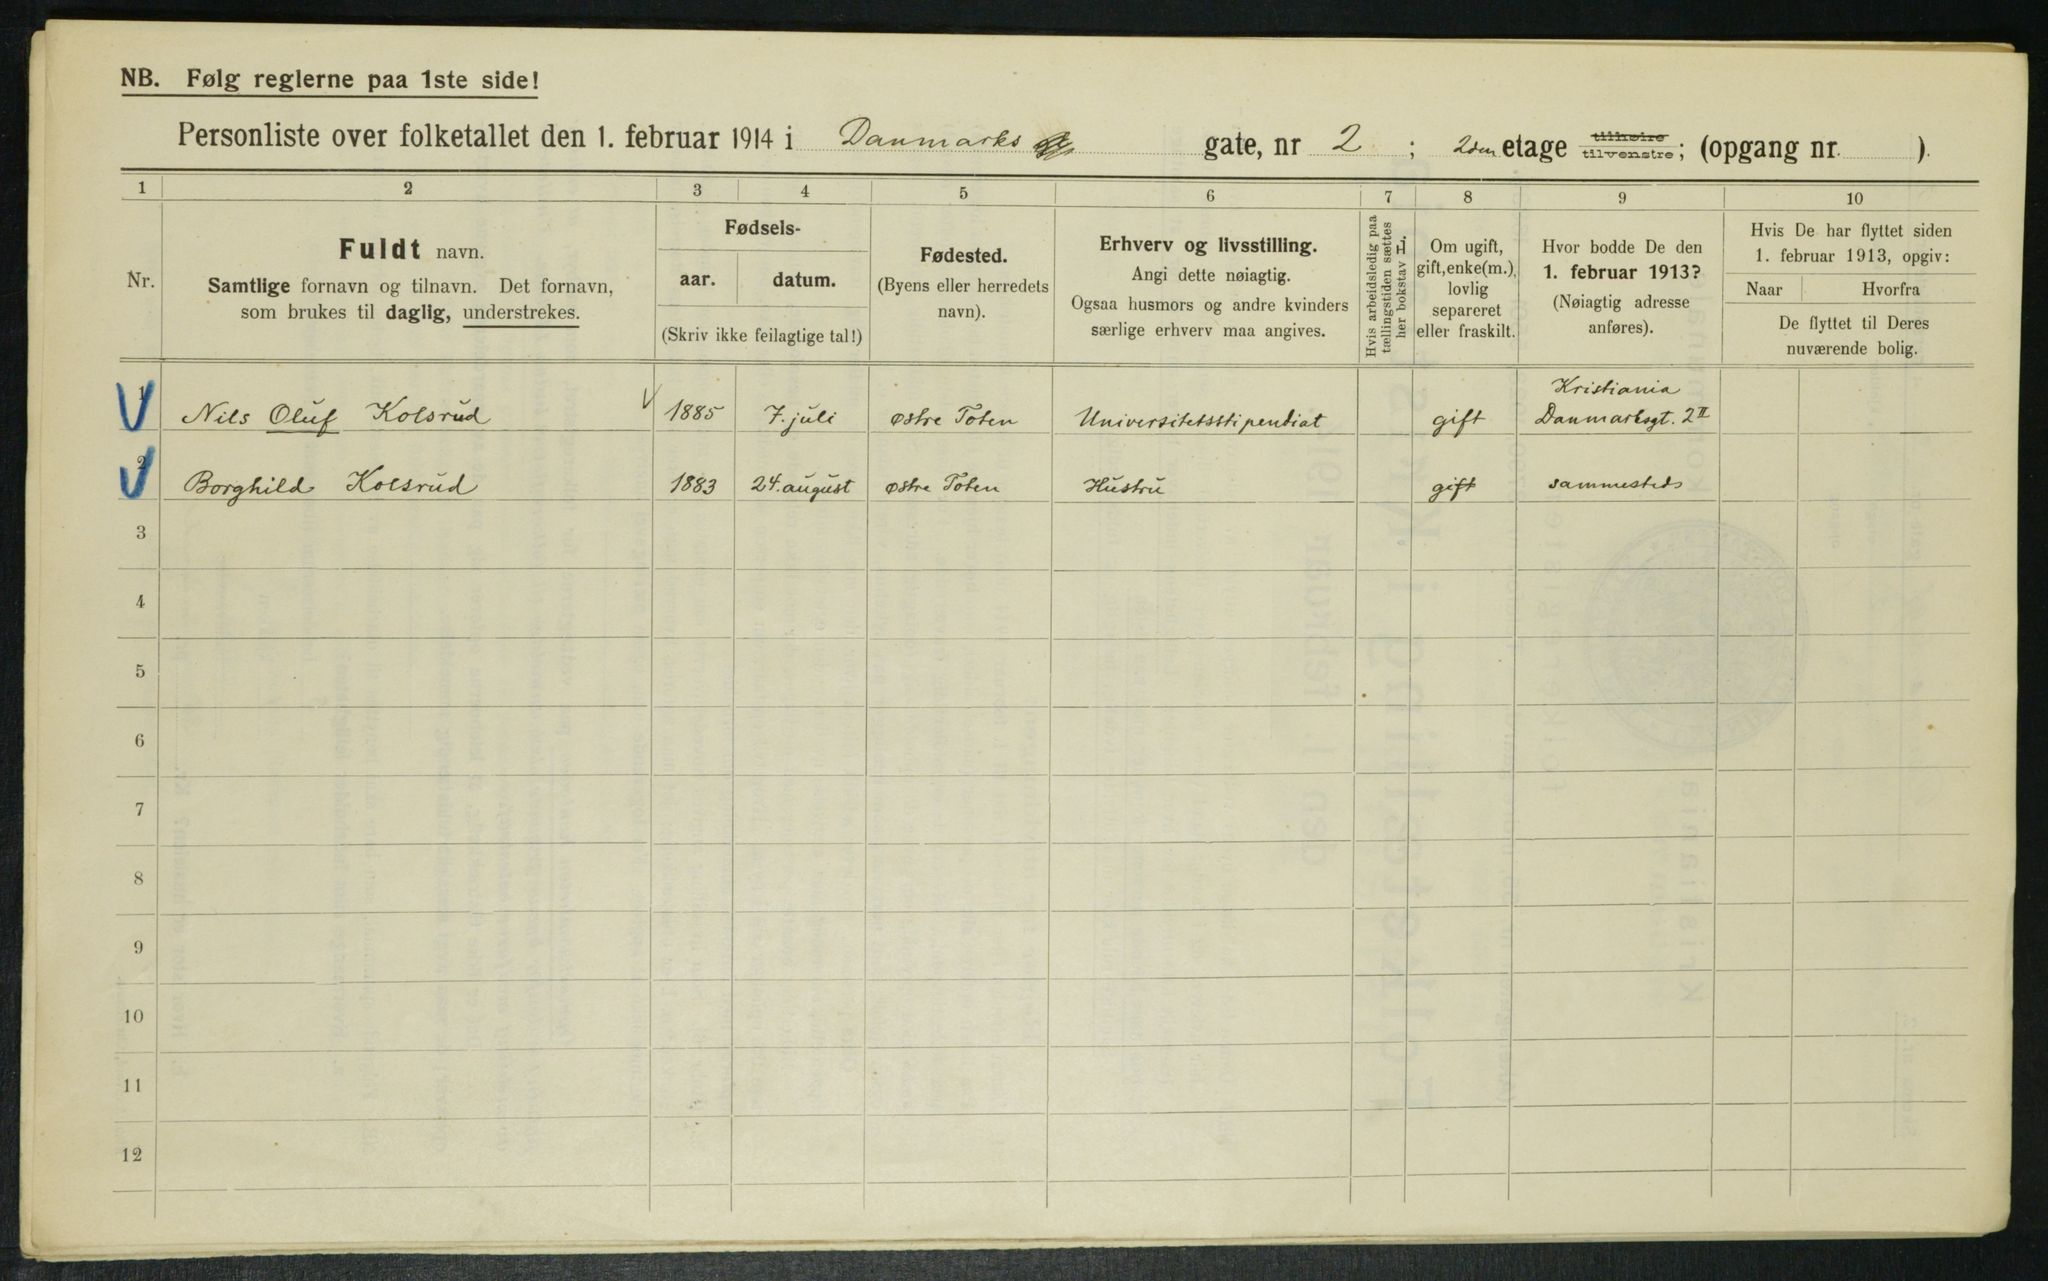 NB. Følg reglerne paa 1ste side!
Personliste over folketallet den 1. februar 1914 i Danmarks gate, nr 2 ; 2den etage tilhøire tilvenstre; (opgang nr. ).
1 2 3 4 5 6 7 8 9 10
Nr.
Fuldt navn.
Samtlige fornavn og tilnavn. Det fornavn,
som brukes til daglig, understrekes.
Fødsels-
aar. datum.
(Skriv ikke feilagtige tal!)
Fødested.
(Byens eller herredets
navn).
Erhverv og livsstilling.
Angi dette nøiagtig.
Ogsaa husmors og andre kvinders
særlige erhverv maa angives.
Hvis arbeidsledig paa
tællingstiden sættes
her bokstav L.
Om ugift,
gift, enke(m.),
lovlig
separeret
eller fraskilt.
Hvor bodde De den
1. februar 1913?
(Nøiagtig adresse
anføres).
Hvis De har flyttet siden
1. februar 1913, opgiv:
Naar Hvorfra
De flyttet til Deres
nuværende bolig.
Kristiania
1 Nils Oluf Kolsrud 1885 7. juli østre Toten Universitetsstipendiat gift Danmarksgt. 2 II
2 Borghild Kolsrud 1883 24. august østre Toten Hustru gift sammesteds
3
4
5
6
7
8
9
10
11
12